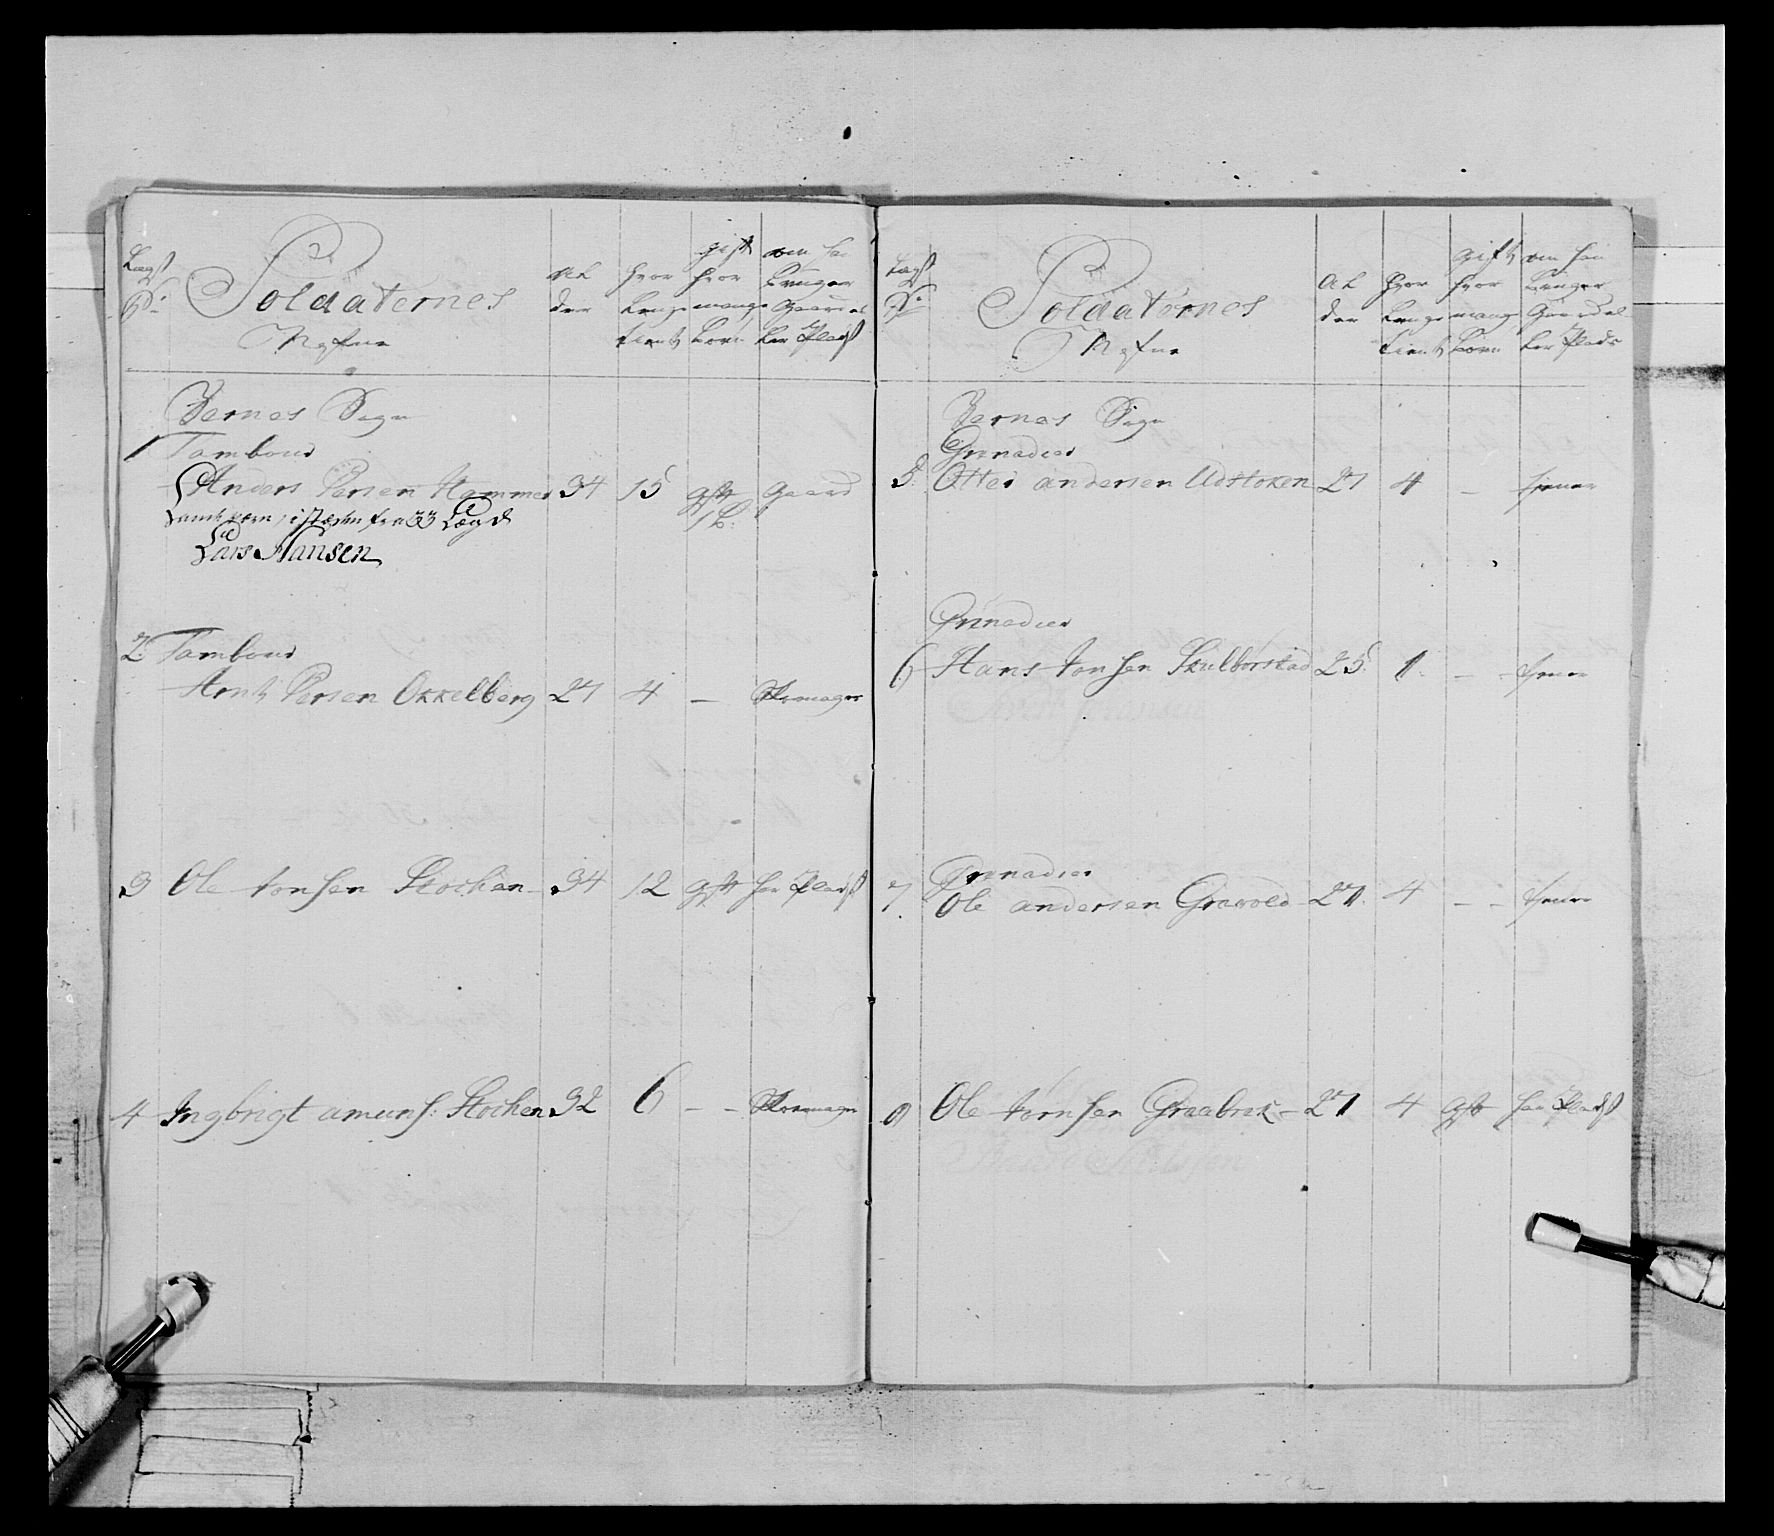 Lægs No. Soldaternes Nafne Alder hvor Lenge tient gift hvor mange Børn om han Bruger Gaard eller Plads
Værnes Sogn
1 Tambour
Anders Persen Hammer 34 15 gift 1 B: Gaard
i stæden fra 33 Lægd
Lars Hansen
2. Tambour
Arnt Persen Okkelberg 27 4 –
3 Ole Jonsen Stochan 34 12 gift har Plads
4 Ingbrigt amuns: Stochan 32 6 – –
Lægs No. Soldaternes Nafne Alder hvor Lenge tient gift hvor mange Børn om han Bruger Gaard eller Plads
Værnes Sogn
Grenadeer
5. Otter andersen Udstoken 27 4 – tiener
Grenadeer
6 Hans Jonsen Skulbørstad 25. 1. – – tiener
Grenadeer
7. Ole andersen Gravold 27. 4 – – tiener
Ole Jonsen Graabræk 27 4 gift har Plads